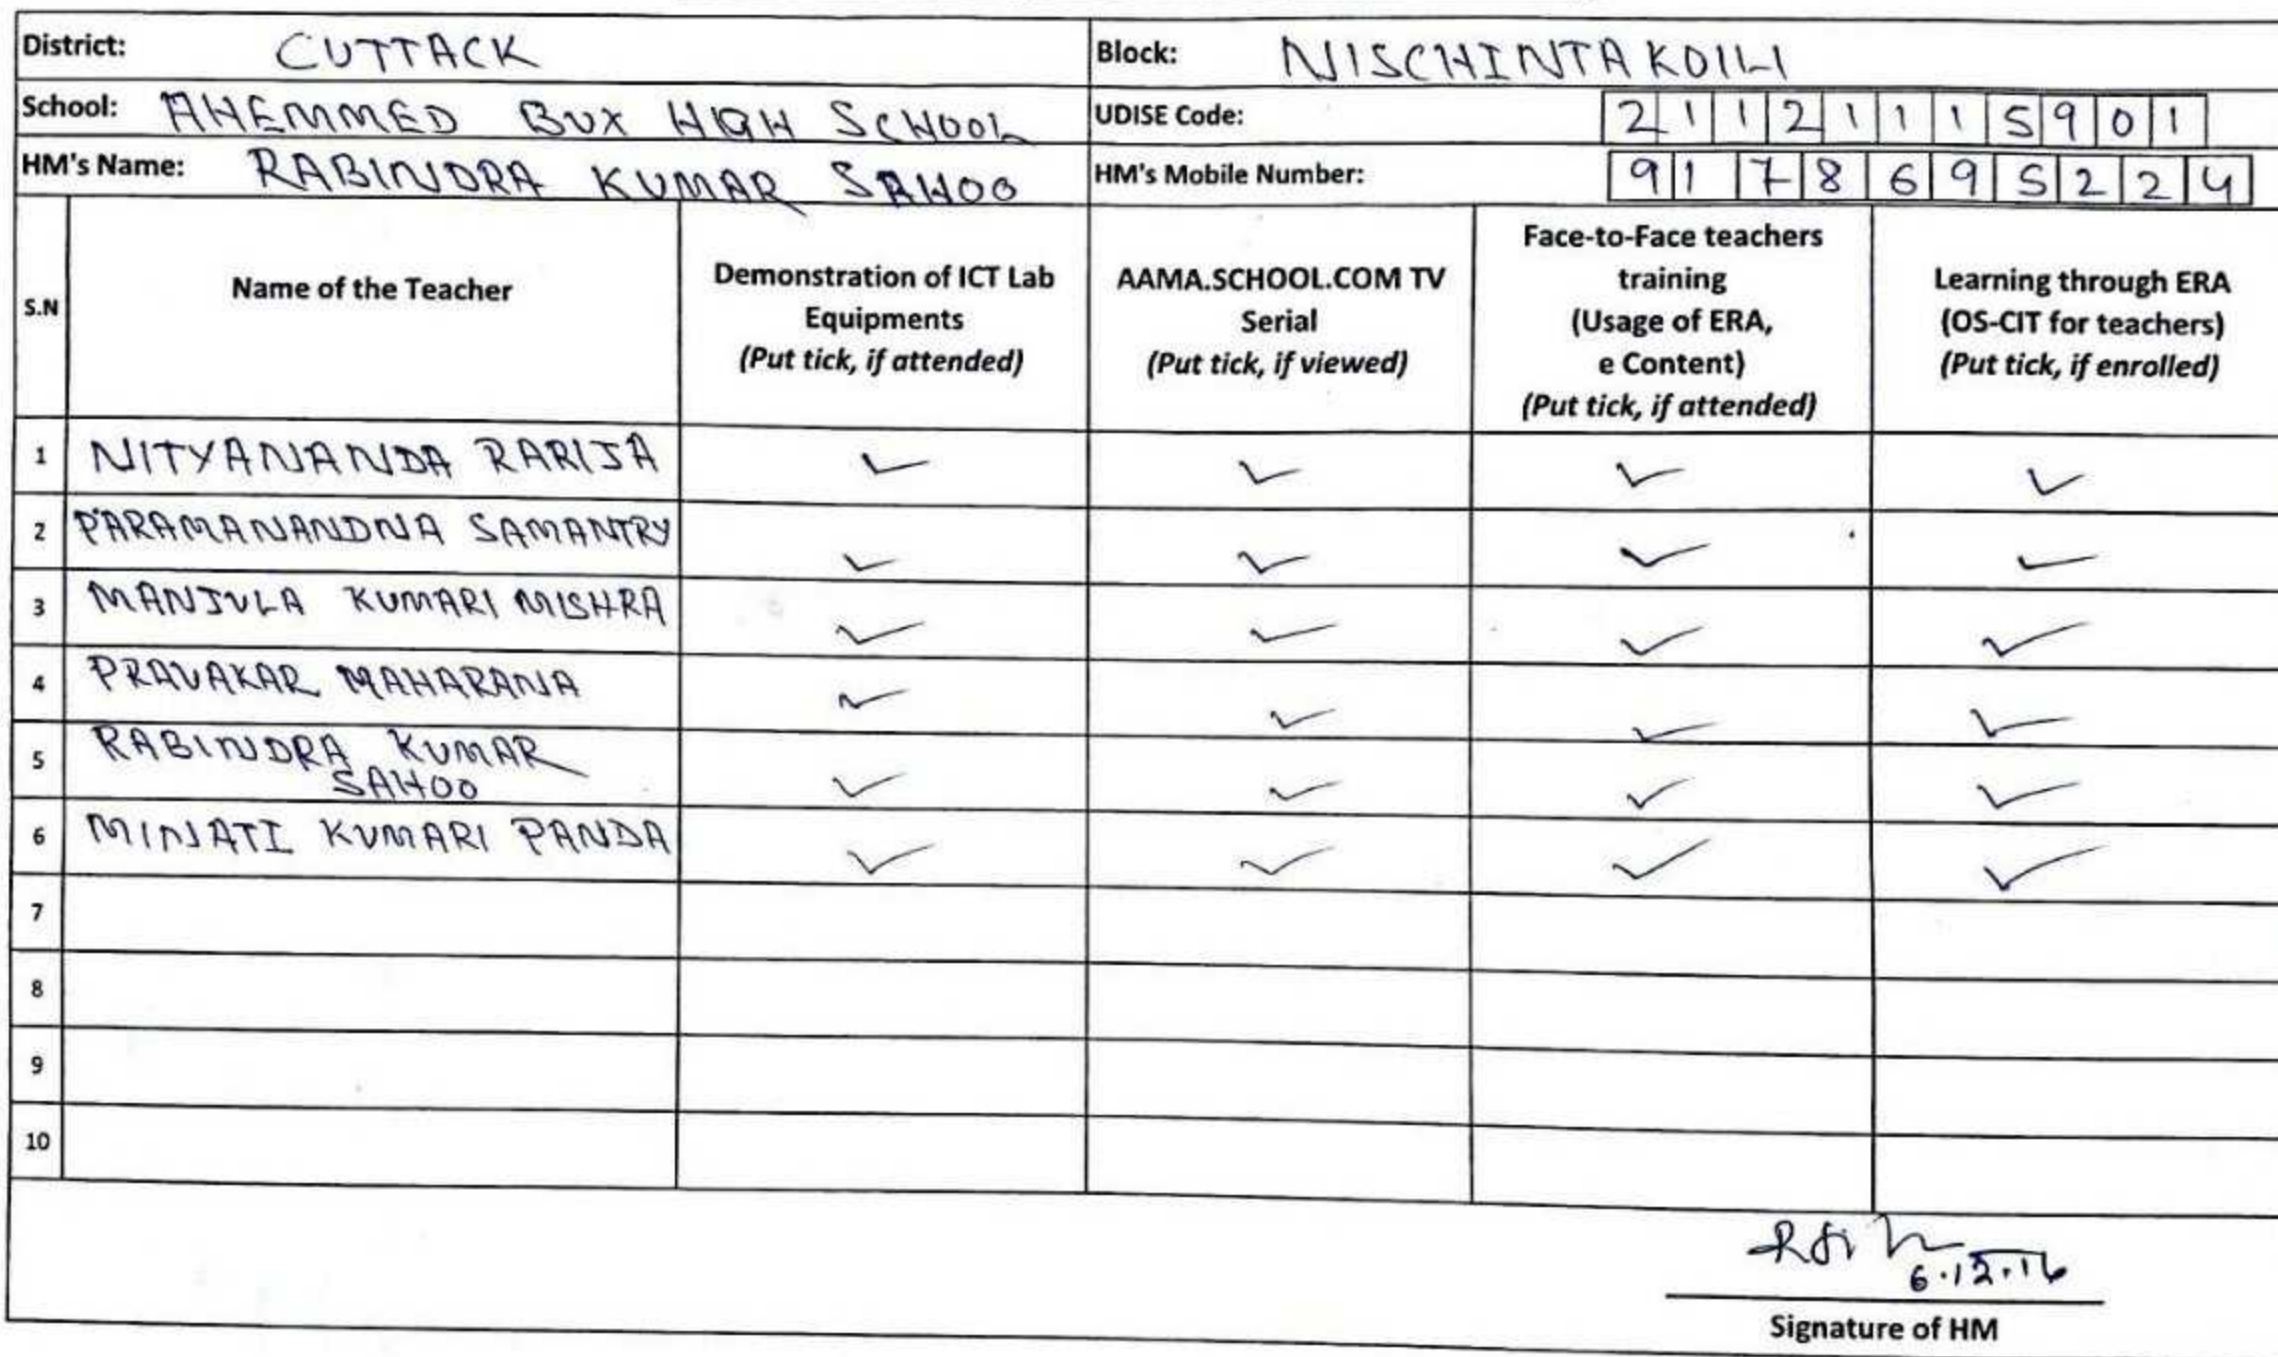 District: CUTTACK
Block: NISCHINTAKOILI
School: AHEMMED BUX HIGH SCHOOL
UDISE Code: 21121115901
HM's Name: RABINDRA KUMAR SAHOO
HM's Mobile Number: 9178695224
S.N
Name of the Teacher
Demonstration of ICT Lab
Equipments
(Put tick, if attended)
AAMA.SCHOOL.COM TV
Serial
(Put tick, if viewed)
Face-to-Face teachers
training
(Usage of ERA,
e Content)
(Put tick, if attended)
Learning through ERA
(OS-CIT for teachers)
(Put tick, if enrolled)
1 NITYANANDA PARIJA ✓ ✓ ✓ ✓
2 PARAMANANDNA SAMANTRY ✓ ✓ ✓ ✓
3 MANJULA KUMARI MISHRA ✓ ✓ ✓ ✓
4 PRAVAKAR MAHARANA ✓ ✓ ✓ ✓
5 RABINDRA KUMAR
SAHOO ✓ ✓ ✓ ✓
6 MINATI KUMARI PANDA ✓ ✓ ✓ ✓
7
8
9
10
6.12.16
Signature of HM